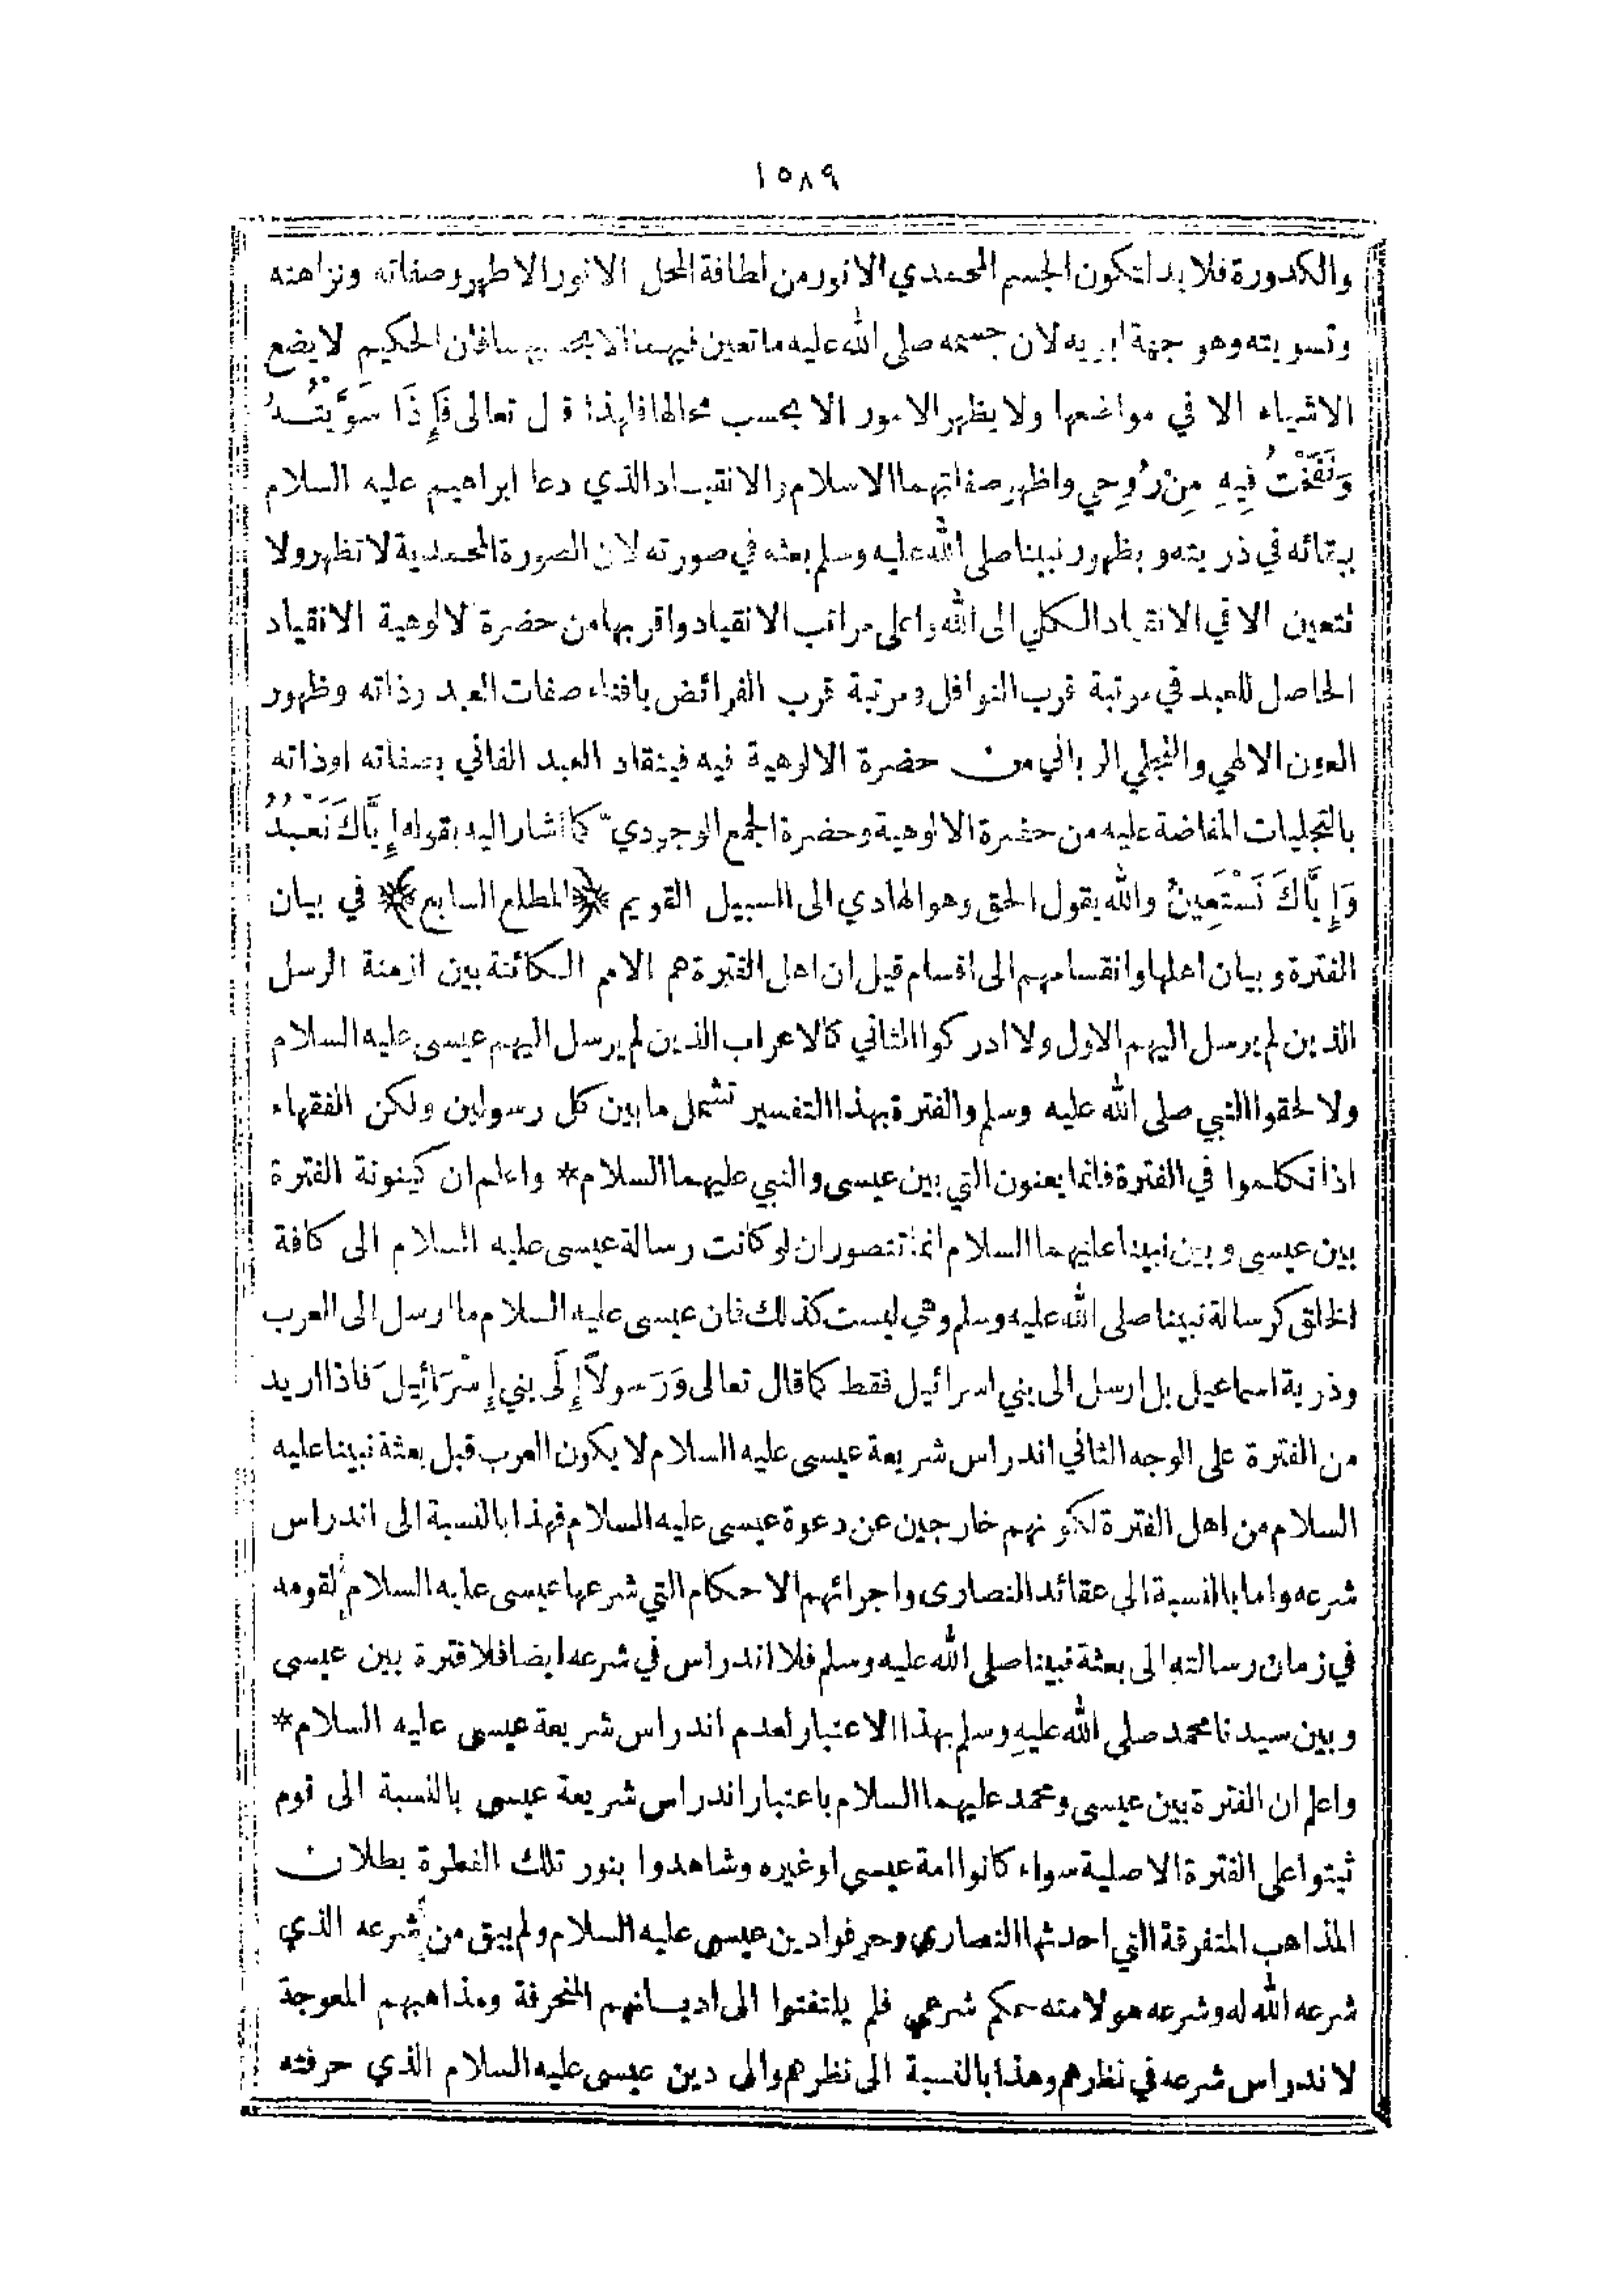 ١٥٨٩
والكدورة فلا بد لتكون الجسم المحمدي الانور من لطافة المحل الانور الاطهر وصفاته ونزاهته
وتسويته وهو جهة ابويه لان جسمه صلى الله عليه ما تعين فيهما الا بحسبهما فان الحكيم لا يضع
الاشياء الا في مواضعها ولا يظهر الامور الا بحسب محالها فلهذا قال تعالى فَإِذَا سَوَّيْتُهُ
وَنَفَخْتُ فِيهِ مِنْ رُوحِي واظهر صفاتهما الاسلام والانقياد الذي دعا ابراهيم عليه السلام
ببقائه في ذريته وبظهور نبينا صلى الله عليه وسلم بعثه في صورته لان الصورة المحمدية لا تظهر ولا
تتعين الا في الانقياد الكلي الى الله واعلى مراتب الانقياد واقربها من حضرة الالوهية الانقياد
الحاصل للعبد في مرتبة قرب النوافل ومرتبة قرب الفرائض بافناء صفات العبد وذاته وظهور
العون الالهي والتجلي الرباني من حضرة الالوهية فيه فينقاد العبد الفاني بصفاته اوذاته
بالتجليات المفاضة عليه من حضرة الالوهية وحضرة الجمع الوجودي كما اشار اليه بقوله إِيَّاكَ نَعْبُدُ
وَإِيَّاكَ نَسْتَعِينُ والله يقول الحق وهو الهادي الى السبيل القويم ﴿المطلع السابع﴾ في بيان
الفترة وبيان اهلها وانقسامهم الى اقسام قيل ان اهل الفترة هم الامم الكائنة بين ازمنة الرسل
الذين لم يرسل اليهم الاول ولا ادركوا الثاني كالاعراب الذين لم يرسل اليهم عيسى عليه السلام
ولا لحقوا النبي صلى الله عليه وسلم والفترة بهذا التفسير تشمل ما بين كل رسولين ولكن الفقهاء
اذا تكلموا في الفترة فانما يعنون التي بين عيسى والنبي عليهما السلام * واعلم ان كينونة الفترة
بين عيسى وبين نبينا عليهما السلام انما تتصور ان لو كانت رسالة عيسى عليه السلام الى كافة
الخلق كرسالة نبينا صلى الله عليه وسلم وهي ليست كذلك فان عيسى عليه السلام ما ارسل الى العرب
وذرية اسماعيل بل ارسل الى بني اسرائيل فقط كما قال تعالى وَرَسولاً إِلَى بني إِسْرَائِيلَ فاذا اريد
من الفترة على الوجه الثاني اندراس شريعة عيسى عليه السلام لا يكون العرب قبل بعثة نبينا عليه
السلام من اهل الفترة لكونهم خارجين عن دعوة عيسى عليه السلام فهذا بالنسبة الى اندراس
شرعه واما بالنسبة الى عقائد النصارى واجرائهم الاحكام التي شرعها عيسى عليه السلام لقومه
في زمان رسالته الى بعثة نبينا صلى الله عليه وسلم فلا اندراس في شرعه ايضا فلا فترة بين عيسى
وبين سيدنا محمد صلى الله عليهِ وسلم بهذا الاعتبار لعدم اندراس شريعة عيسى عليه السلام *
واعلم ان الفترة بين عيسى ومحمد عليهما السلام باعتبار اندراس شريعة عيسى بالنسبة الى قوم
ثبتوا على الفترة الاصلية سواء كانوا امة عيسى او غيره وشاهدوا بنور تلك الفطرة بطلان
المذاهب المتفرقة التي احدثها النصارى وحرفوا دين عيسى عليه السلام ولم يبق من شرعه الذي
شرعه الله له وشرعه هو لامته حكم شرعي فلم يلتفتوا الى اديانهم المنحرفة ومذاهبهم المعوجة
لاندراس شرعه في نظرهم وهذا بالنسبة الى نظرهم والى دين عيسى عليه السلام الذي حرفته